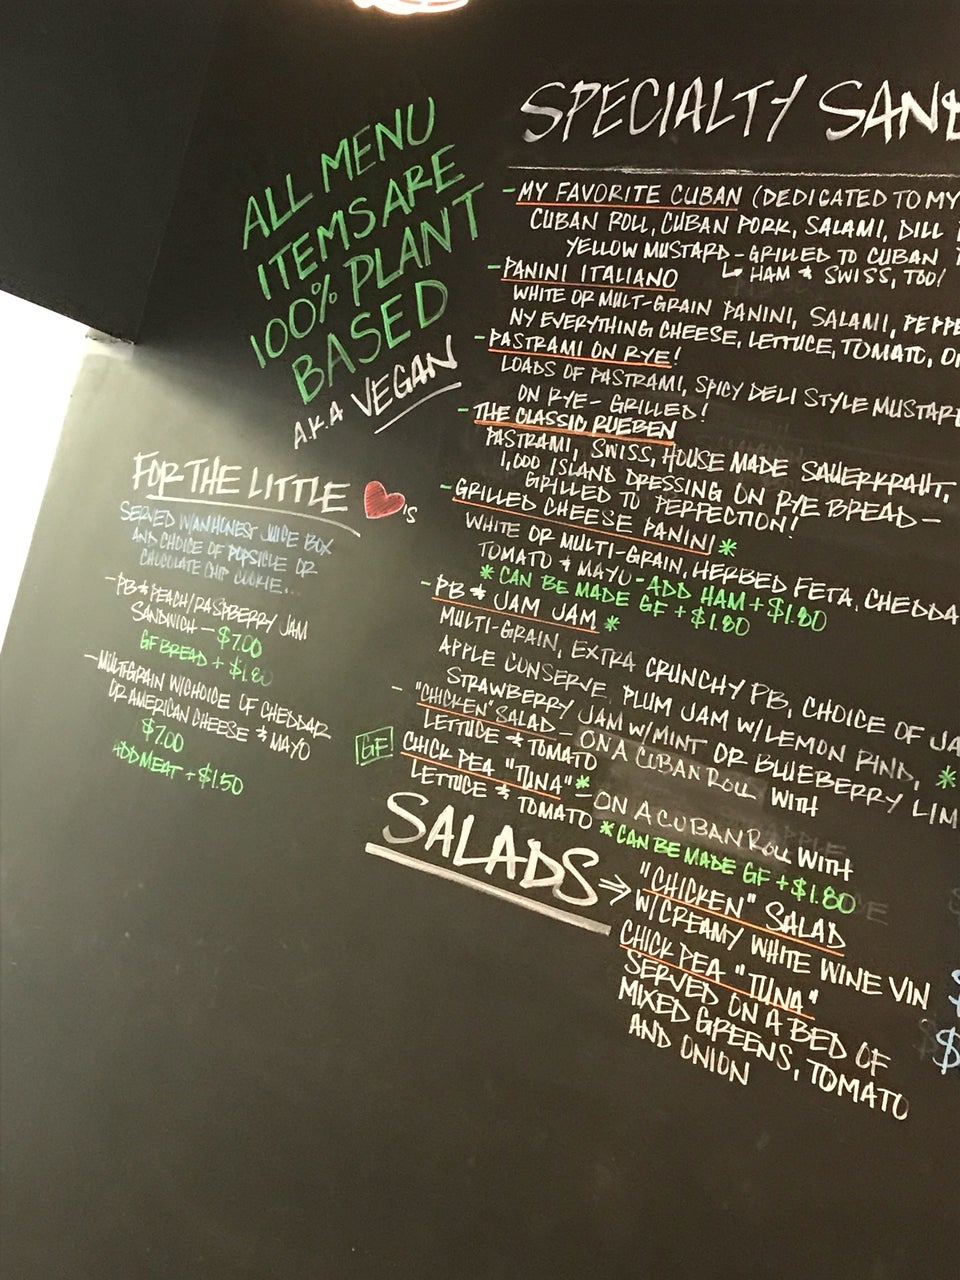 ALL MENU
ITEMS ARE
100% PLANT
BASED
A.K.A VEGAN
FOR THE LITTLE ❤'S
SERVED W/AN HONEST JUICE BOX
AND CHOICE OF POPSICLE OR
CHOCOLATE CHIP COOKIE...
-PB & PEACH/RASPBERRY JAM
SANDWICH - $7.00
GF BREAD + $1.80
-MULTIGRAIN W/CHOICE OF CHEDDAR
OR AMERICAN CHEESE & MAYO
$7.00
ADD MEAT + $1.50
SPECIALTY SAND
-MY FAVORITE CUBAN (DEDICATED TO MY
CUBAN ROLL, CUBAN PORK, SALAMI, DILL
YELLOW MUSTARD - GRILLED TO CUBAN
↳ HAM & SWISS, TOO!
-PANINI ITALIANO
WHITE OR MULT-GRAIN PANINI, SALAMI, PEPPE
NY EVERYTHING CHEESE, LETTUCE, TOMATO,
-PASTRAMI ON RYE!
LOADS OF PASTRAMI, SPICY DELI STYLE MUSTARD
ON RYE - GRILLED!
-THE CLASSIC RUEBEN
PASTRAMI, SWISS, HOUSE MADE SAUERKRAUT,
1,000 ISLAND DRESSING ON RYE BREAD -
GRILLED TO PERFECTION!
-GRILLED CHEESE PANINI *
WHITE OR MULTI-GRAIN, HERBED FETA, CHEDDA
TOMATO & MAYO - ADD HAM + $1.80
* CAN BE MADE GF + $1.80
-PB & JAM JAM *
MULTI-GRAIN, EXTRA CRUNCHY PB, CHOICE OF JA
APPLE CONSERVE, PLUM JAM W/LEMON RIND, *
STRAWBERRY JAM W/MINT OR BLUEBERRY LIM
- "CHICKEN" SALAD - ON A CUBAN ROLL WITH
LETTUCE & TOMATO
GF CHICK PEA "TUNA" * - ON A CUBAN ROLL WITH
LETTUCE & TOMATO * CAN BE MADE GF + $1.80
SALADS ⇒ "CHICKEN" SALAD
W/CREAMY WHITE WINE VIN
CHICK PEA "TUNA"
SERVED ON A BED OF
MIXED GREENS, TOMATO
AND ONION
$
$